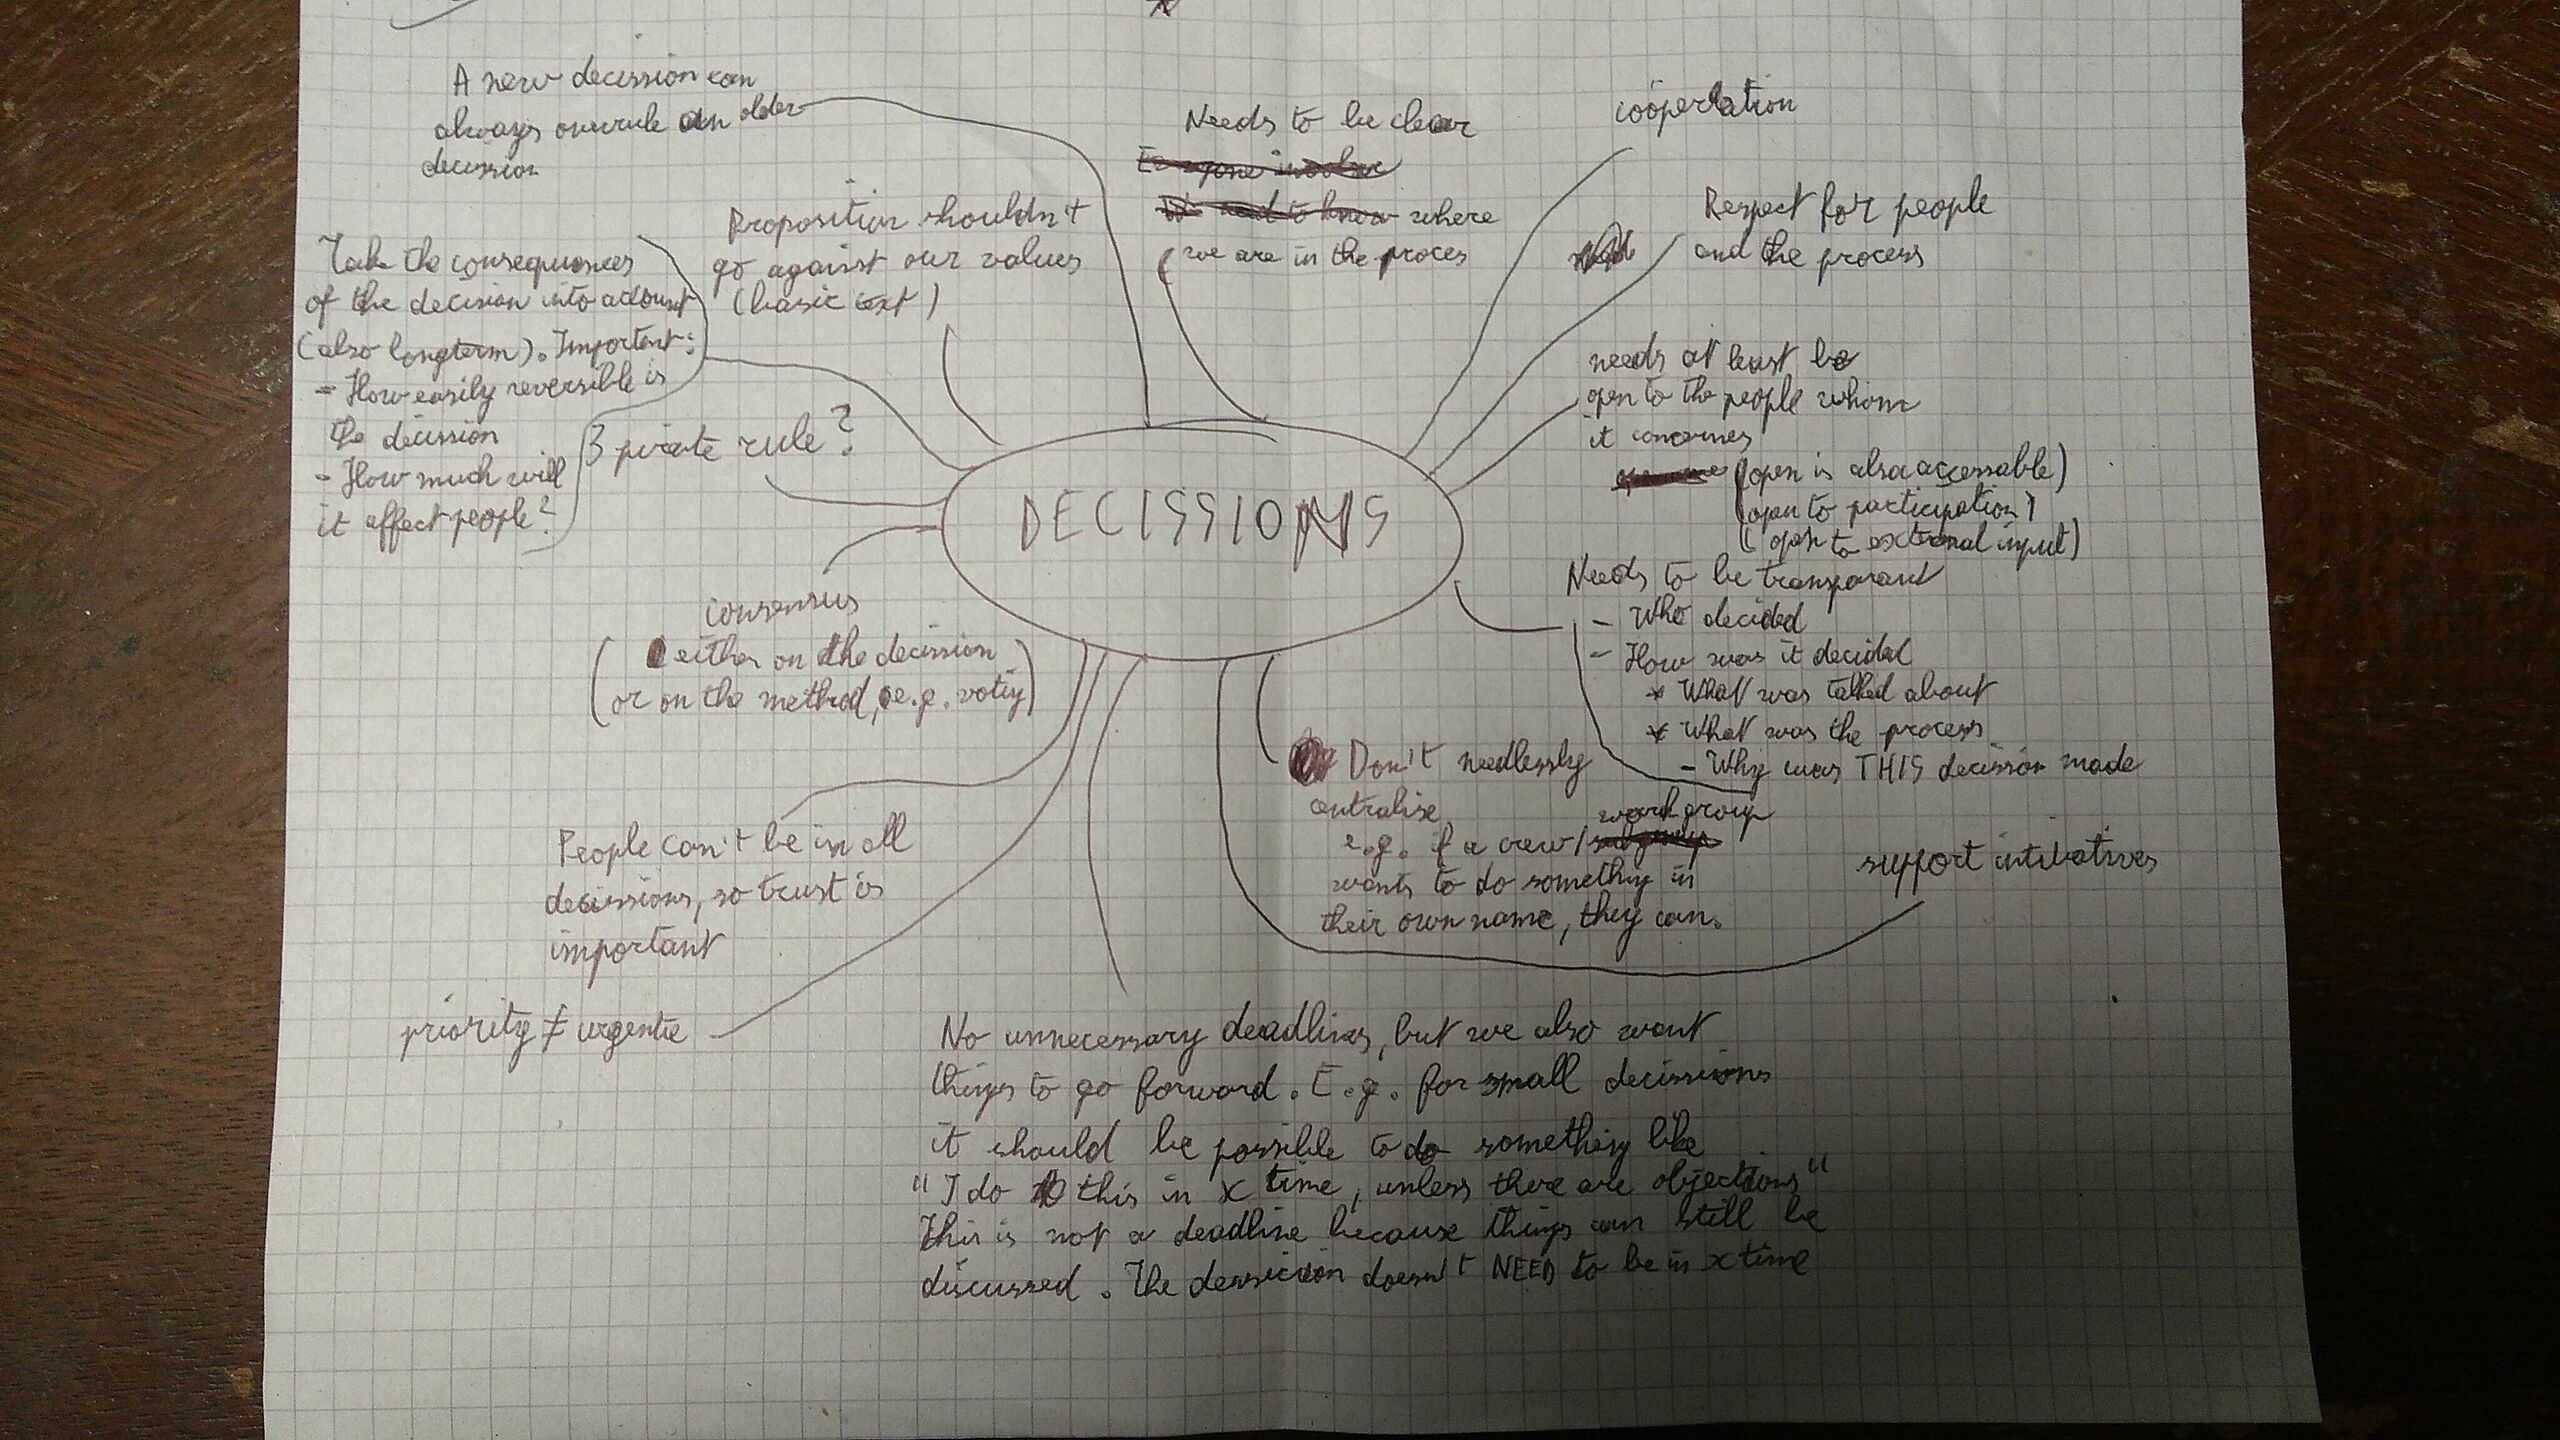 A new decission can
always overrule an older
decission
Needs to be clear
where
we are in the proces
coöperation
Respect for people
and the process
Proposition shouldn't
go against our values
(basic text)
Take the consequences
of the decision into account
(also longterm). Important:
- How easily reversible is
the decission
- How much will
it affect people?
3 pirate rule?
needs at least be
open to the people whom
it concernes
(open is also accessable)
(open to participation)
(open to external input)
DECISSIONS
Needs to be transparant
- Who decided
- How was it decided
* What was talked about
* What was the process
- Why was THIS decission made
consensus
(either on the decission
or on the method, e.g. voting)
Don't needlessly
centralise
e.g. if a crew/workgroup
wants to do something in
their own name, they can.
support intitiatives
People can't be in all
decissions, so trust is
important
priority ≠ urgentie
No unnecessary deadlines, but we also want
things to go forward. E.g. for small decissions
it should be possible to do something like
"I do this in x time, unless there are objections"
This is not a deadline because things can still be
discussed. The dessicion doesn't NEED to be in x time